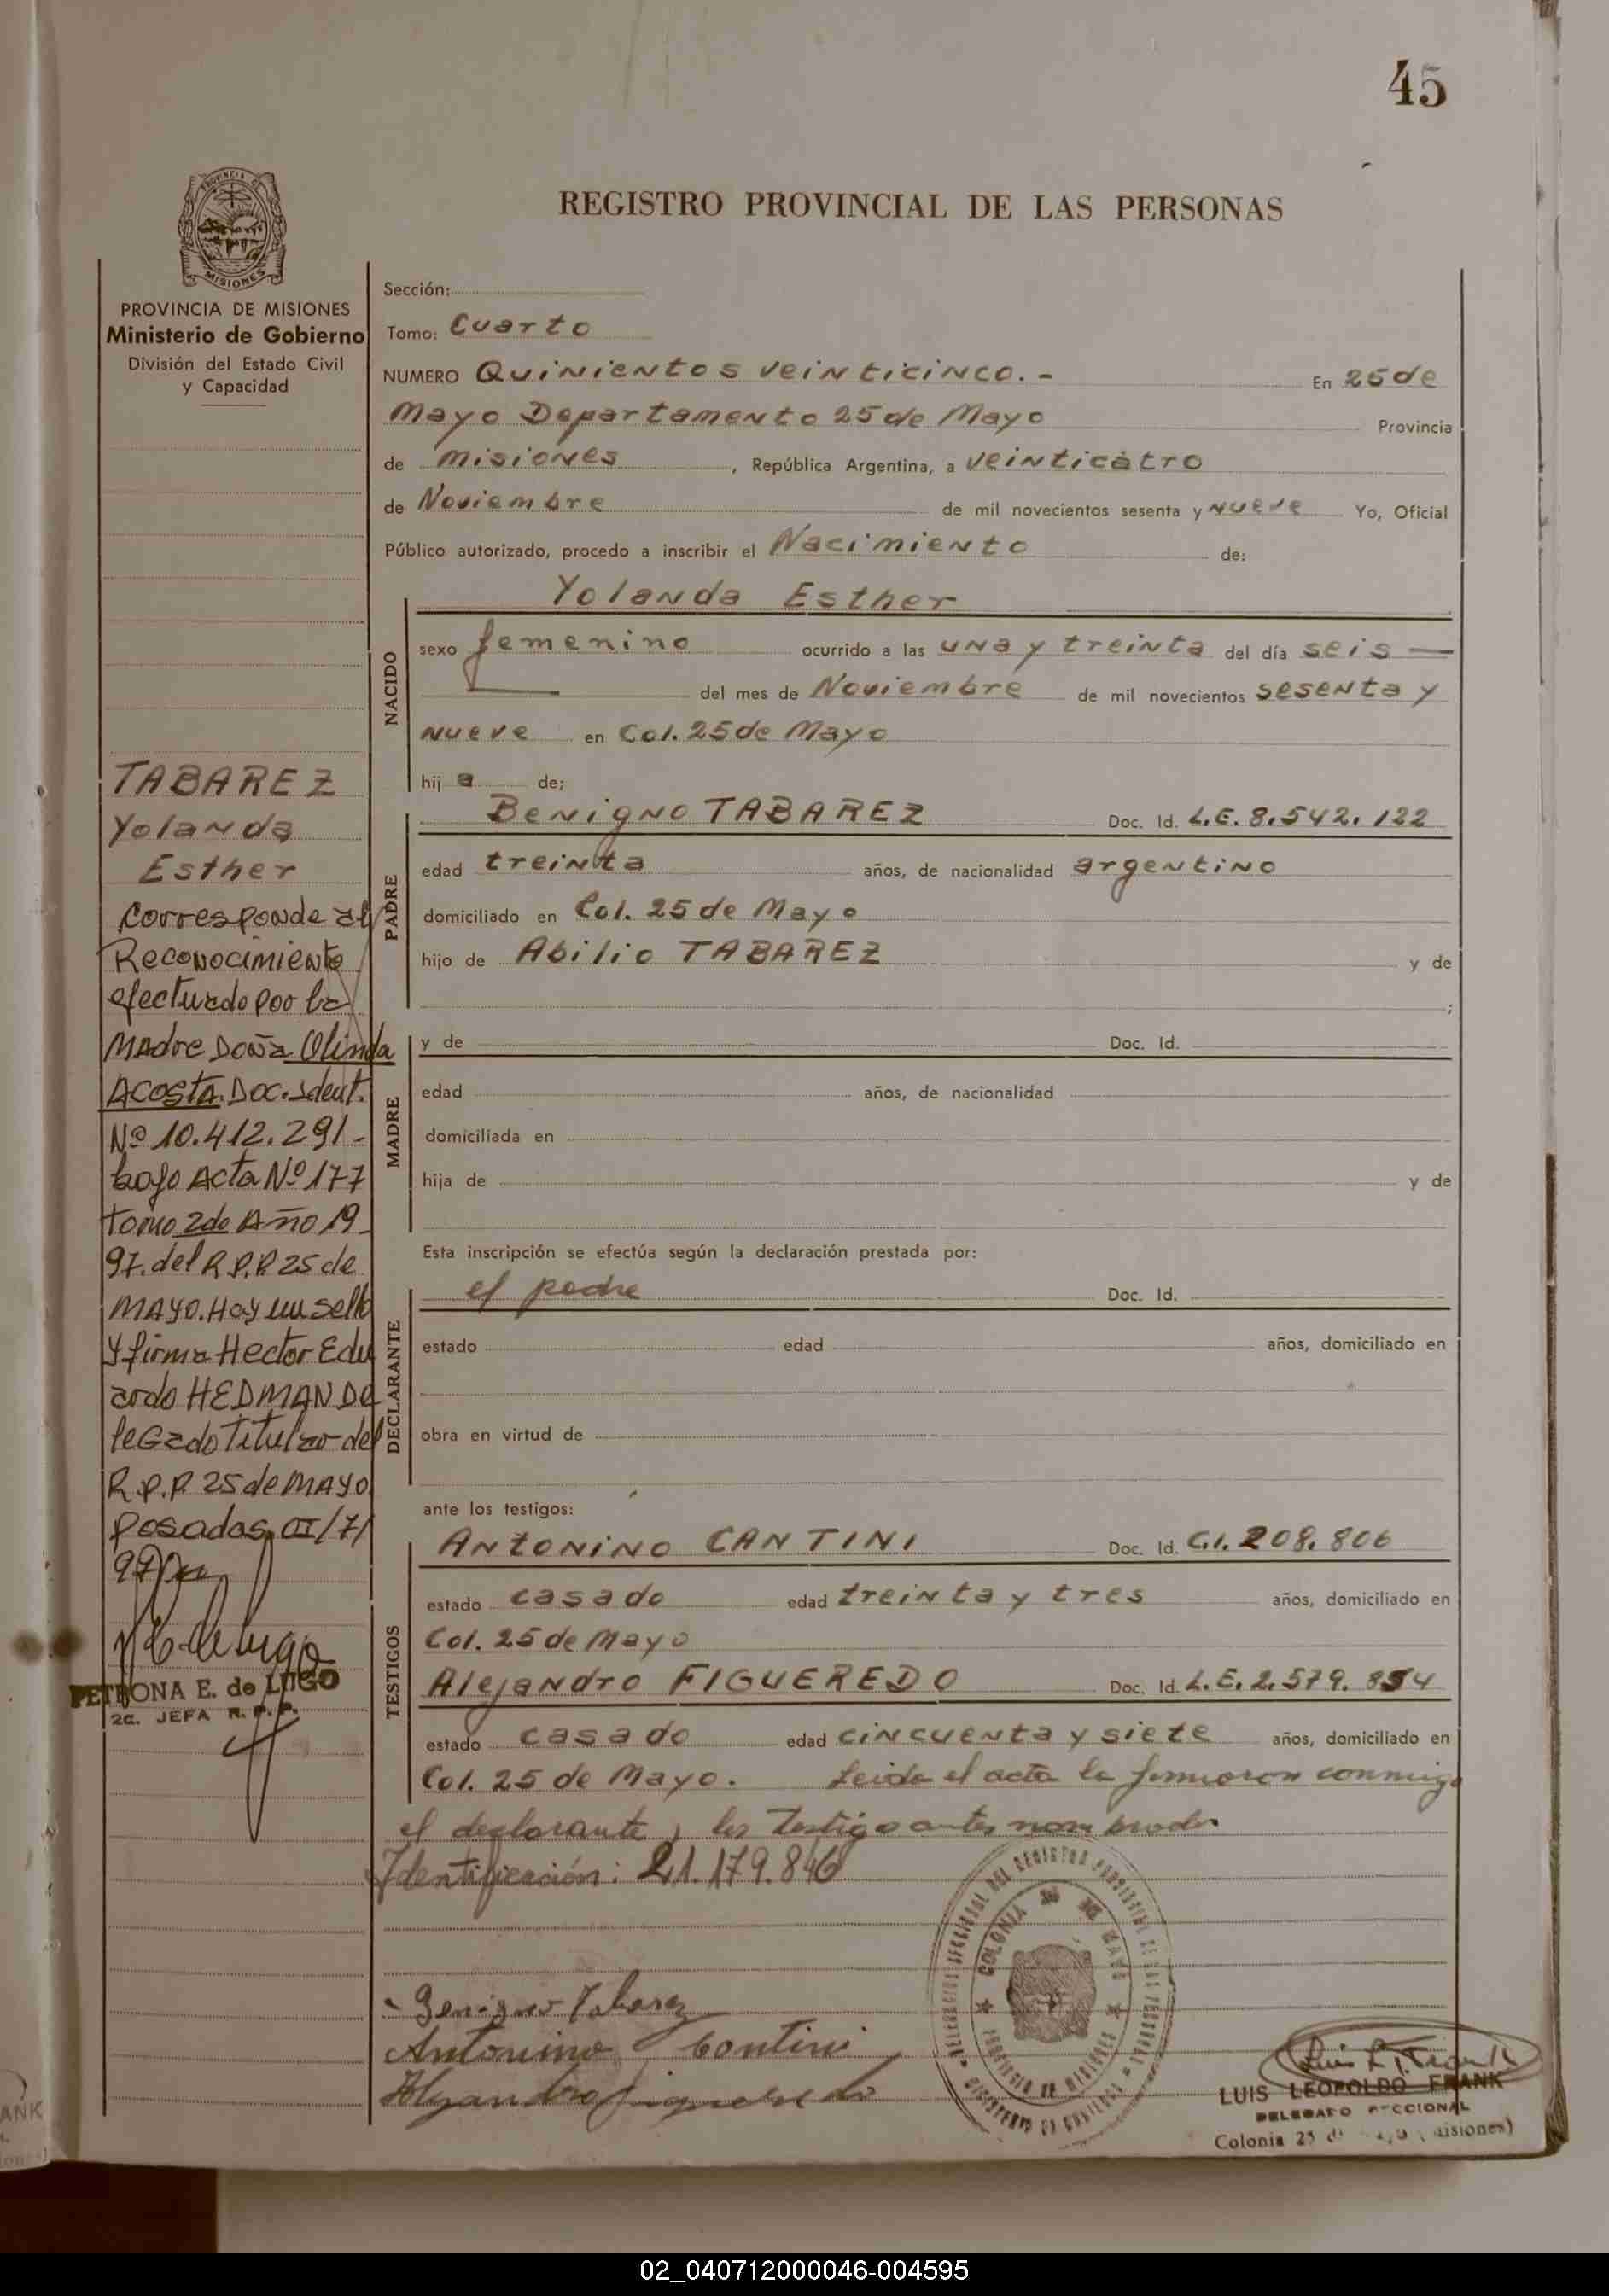 45
PROVINCIA DE
MISIONES
REGISTRO PROVINCIAL DE LAS PERSONAS
PROVINCIA DE MISIONES
Ministerio de Gobierno
División del Estado Civil
y Capacidad
TABAREZ
Yolanda
Esther
Corresponde al
Reconocimiento
efectuado por la
Madre Doña Olinda
ACOSTA. Doc. Ident.
Nº 10.412.291-
bajo Acta Nº 177
tomo 2do Año 19-
97. del R.P.P. 25 de
MAYO. Hay un sello
y firma Hector Edu
ardo HEDMAN De
legado Titular del
R.P.P. 25 de MAYO
Posadas, 01/7/
97
PETRONA E. de LUGO
2a. JEFA R. P. P.
Sección:
Tomo: Cuarto
NUMERO Quinientos veinticinco.- En 25 de
Mayo Departamento 25 de Mayo Provincia
de Misiones, República Argentina, a veinticatro
de Noviembre de mil novecientos sesenta y nueve Yo, Oficial
Público autorizado, procedo a inscribir el Nacimiento de:
NACIDO
Yolanda Esther
sexo femenino ocurrido a las una y treinta del día seis —
— del mes de Noviembre de mil novecientos sesenta y
nueve en Col. 25 de Mayo
hij a de;
PADRE
Benigno TABAREZ Doc. Id. L.E. 8.542.122
edad treinta años, de nacionalidad argentino
domiciliado en Col. 25 de Mayo
hijo de Abilio TABAREZ y de
;
MADRE
y de Doc. Id.
edad años, de nacionalidad
domiciliada en
hija de y de
Esta inscripción se efectúa según la declaración prestada por:
DECLARANTE
el padre Doc. Id.
estado edad años, domiciliado en
obra en virtud de
ante los testigos:
TESTIGOS
Antonino CANTINI Doc. Id. C.I. 208.806
estado casado edad treinta y tres años, domiciliado en
Col. 25 de Mayo
Alejandro FIGUEREDO Doc. Id. L.E. 2.579.854
estado casado edad cincuenta y siete años, domiciliado en
Col. 25 de Mayo. Leida el acta la firmaron conmigo
el declarante y los testigo antes nombrados
Identificación: 21.179.846
Benigno Tabarez
Antonino Contini
Alejandro Figueredo
COLONIA 25 DE MAYO
PROVINCIA DE MISIONES
LUIS LEOPOLDO FRANK
DELEGADO SECCIONAL
Colonia 25 de Mayo (Misiones)
02_040712000046-004595